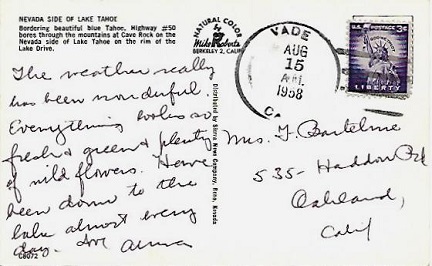 NEVADA SIDE OF LAKE TAHOE
Bordering beautiful blue Tahoe, Highway #50
bores through the mountains at Cave Rock on the
Nevada side of Lake Tahoe on the rim of the
Lake Drive.
NATURAL COLOR
by
Mike Roberts
BERKELEY 2, CALIF.
VADE
AUG
15
1958
U.S. POSTAGE 3¢
LIBERTY
The weather really
has been wonderful.
Everything looks so
fresh & green & plenty
of wild flowers. Have
been down to the
lake almost every
day. Love Anna
C6072
Distributed by Sierra News Company, Reno, Nevada
Mrs. F. Bartelme
535 - Haddon Rd
Oakland,
Calif